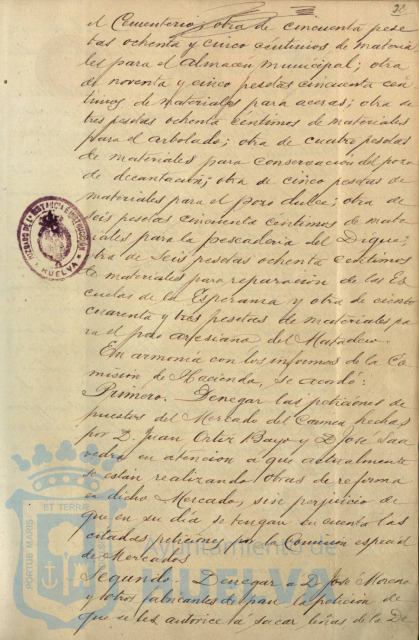 28
el Cementerio; otra de cincuenta pese
tas ochenta y cinco céntimos de materia
les para el almacén municipal; otra
de noventa y cinco pesetas cincuenta cén
timos de materiales para aceras; otra de
tres pesetas ochenta céntimos de materiales
para el arbolado; otra de cuatro pesetas
de materiales para conservación del pozo
de decantación; otra de cinco pesetas de
materiales para el pozo dulce; otra de
seis pesetas cincuenta céntimos de mate
riales para la pescadería del Dique;
otra de seis pesetas ochenta céntimos
de materiales para reparación de las Es
cuelas de la Esperanza y otra de ciento
cuarenta y tres pesetas de materiales pa
ra el pozo artesiano del Matadero.
En armonía con los informes de la Co
misión de Hacienda, se acordó:
Primero. Denegar las peticiones de
puestos del Mercado del Carmen hechas
por D. Juan Ortiz Bayo y D. José Saa
vedra en atención a que actualmente
se están realizando obras de reforma
en dicho Mercado, sin perjuicio de
que en su día se tengan en cuenta las
citadas peticiones por la Comisión especial
de Mercados
Segundo.- Denegar a D. José Moreno
y otros fabricantes de pan la petición de
que se les autorice a sacar leñas de la De
JUZGADO DE 1ª INSTANCIA E INSTRUCCIÓN
HUELVA
PORTUS MARIS ET TERRAE
Ayuntamiento de
HUELVA